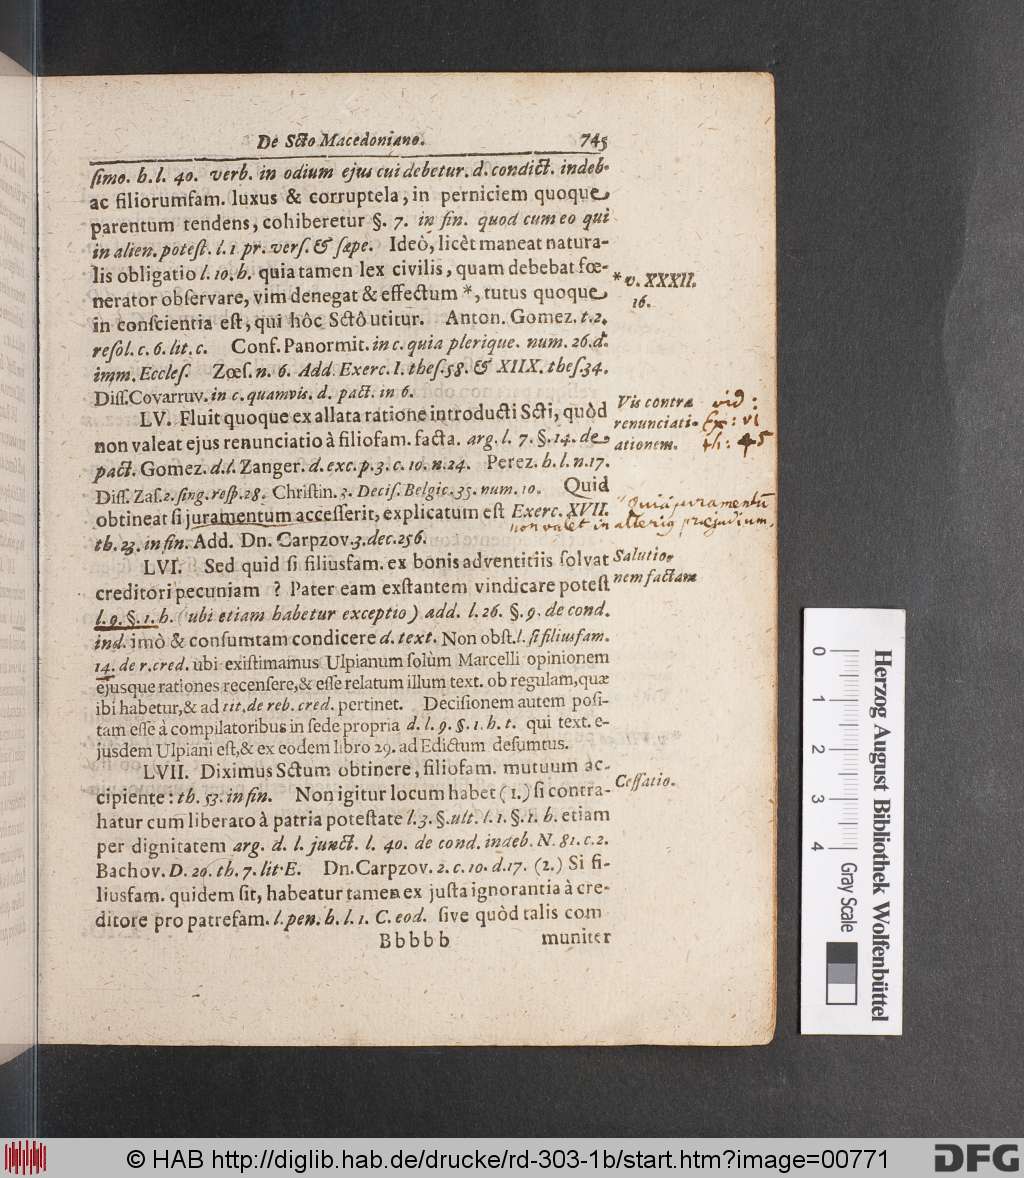 De Scto Macedoniano. 745
ſimo. h. l. 40. verb. in odium ejus cui debetur. d. condict. indeb.
ac filiorumfam. luxus & corruptela, in perniciem quoque
parentum tendens, cohiberetur §. 7. in fin. quod cum eo qui
in alien. poteſt. l. 1 pr. verſ. & ſæpe. Ideò, licèt maneat natura-
lis obligatio l. 10. h. quia tamen lex civilis, quam debebat fœ-
nerator obſervare, vim denegat & effectum *, tutus quoque
* v. XXXII.
16.
in conſcientia eſt, qui hôc Sctô utitur. Anton. Gomez. t. 2.
reſol. c. 6. lit. c. Conf. Panormit. in c. quia plerique. num. 26. d.
imm. Eccleſ. Zœſ. n. 6. Add. Exerc. I. theſ. 58. & XIIX. theſ. 34.
Diſſ. Covarruv. in c. quamvis. d. pact. in 6.
LV. Fluit quoque ex allata ratione introducti Scti, quòd
non valeat ejus renunciatio à filiofam. facta. arg. l. 7. §. 14. de
Vis contra
renunciati-
ationem.
vid:
Ex: VI
th: 45
pact. Gomez. d. l. Zanger. d. exc. p. 3. c. 10. n. 24. Perez. h. l. n. 17.
Diſſ. Zaſ. 2. ſing. reſp. 28. Chriſtin. 3. Deciſ. Belgic. 35. num. 10. Quid
obtineat ſi juramentum acceſſerit, explicatum eſt Exerc. XVII.
Quia juramentū
non valet in alterig præjudium.
th. 23. in fin. Add. Dn. Carpzov. 3. dec. 256.
LVI. Sed quid ſi filiusfam. ex bonis adventitiis ſolvat
Salutio-
nem factam
creditori pecuniam ? Pater eam exſtantem vindicare poteſt
l. 9. §. 1. h. (ubi etiam habetur exceptio) add. l. 26. §. 9. de cond.
ind. imò & conſumtam condicere d. text. Non obſt. l. ſi filiusfam.
14. de r. cred. ubi exiſtimamus Ulpianum ſolùm Marcelli opinionem
ejusque rationes recenſere, & eſſe relatum illum text. ob regulam, quæ
ibi habetur, & ad tit. de reb. cred. pertinet. Deciſionem autem poſi-
tam eſſe à compilatoribus in ſede propria d. l. 9. §. 1. h. t. qui text. e-
jusdem Ulpiani eſt, & ex eodem libro 29. ad Edictum deſumtus.
LVII. Diximus Sctum obtinere, filiofam. mutuum ac-
cipiente: th. 53. in fin. Non igitur locum habet (1.) ſi contra-
Ceſſatio.
hatur cum liberato à patria poteſtate l. 3. §. ult. l. 1. §. 1. h. etiam
per dignitatem arg. d. l. junct. l. 40. de cond. indeb. N. 81. c. 2.
Bachov. D. 29. th. 7. lit. E. Dn. Carpzov. 2. c. 10. d. 17. (2.) Si fi-
liusfam. quidem ſit, habeatur tamen ex juſta ignorantia à cre-
ditore pro patrefam. l. pen. h. l. 1. C. eod. ſive quòd talis com
Bbbbb muniter
0 1 2 3 4
Gray Scale
Herzog August Bibliothek Wolfenbüttel
© HAB http://diglib.hab.de/drucke/rd-303-1b/start.htm?image=00771
DFG